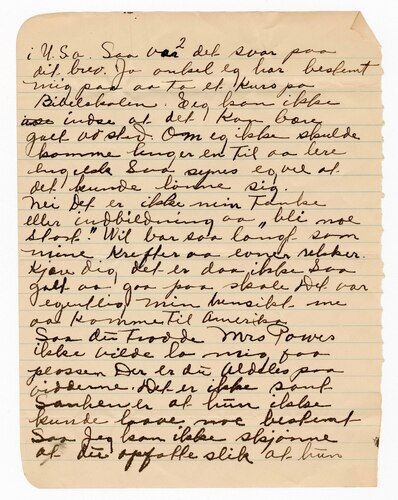 i U.S.a. Saa var² det svar paa
dit brev. Ja onkel eg har bestemt
mig paa aa ta et kurs paa
Bibelskolen. Eeg kan ikke
indse at det kan være
galt av sted. Om eg ikke skulde
komme lenger en til aa lere
engelsk Saa synes eg vel at
det kunde lønne sig.
Nei Det er ikke min Tanke
eller indbildning aa „bli noe
stort." Wil bar saa langt som
mine Krefter aa evner rekker.
Kjære dig, det er daa ikke Saa
galt aa gaa paa skole. Det var
egentlig min hensikt me
aa Komme Til Amerika
Saa du Trodde Mrs Powers
ikke vilde la mig faa
plassen Der er du aldeles paa
vidderne. Det er ikke sant
Sanhener at hun ikke
kunde love noe bestemt
Saa Jeg kan ikke skjønne
at du opfatte slik at hun